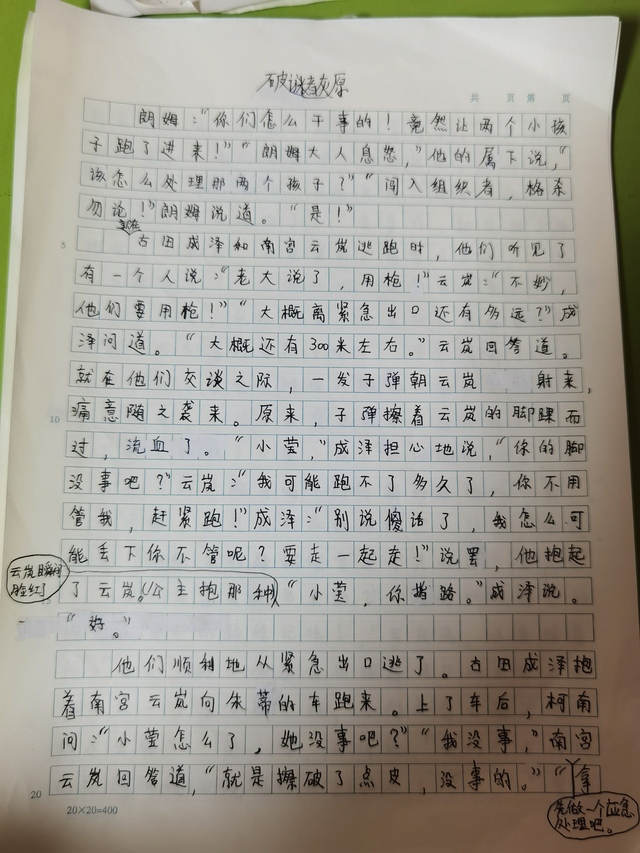 破谜者灰原
共 页 第 页
朗姆：“你们怎么干事的！竟然让两个小孩
子跑了进来！”“朗姆大人息怒，”他的属下说，“
该怎么处理那两个孩子？”“闯入组织者，格杀
勿论！”朗姆说道。“是！”
正在
5 古田成泽和南宫云岚逃跑时，他们听见了
有一个人说：“老大说了，用枪！”云岚：“不妙，
他们要用枪！”“大概离紧急出口还有多远？”成
泽问道。“大概还有300米左右。”云岚回答道。
就在他们交谈之际，一发子弹朝云岚 射来，
10 痛意随之袭来。原来，子弹擦着云岚的脚踝而
过，流血了。“小莹，”成泽担心地说，“你的脚
没事吧？”云岚：“我可能跑不了多久了，你不用
管我，赶紧跑！”成泽：“别说傻话了，我怎么可
能丢下你不管呢？要走一起走！”说罢，他抱起
云岚瞬间脸红了
15 了云岚。（公主抱那种）“小莹，你指路。”成泽说。
“好。”
他们顺利地从紧急出口逃了。古田成泽抱
着南宫云岚向朱蒂的车跑来。上了车后，柯南
问：“小莹怎么了，她没事吧？”“我没事，”南宫
20 云岚回答道，“就是擦破了点皮，没事的。”“拿
先做一个应急处理吧。
20×20=400